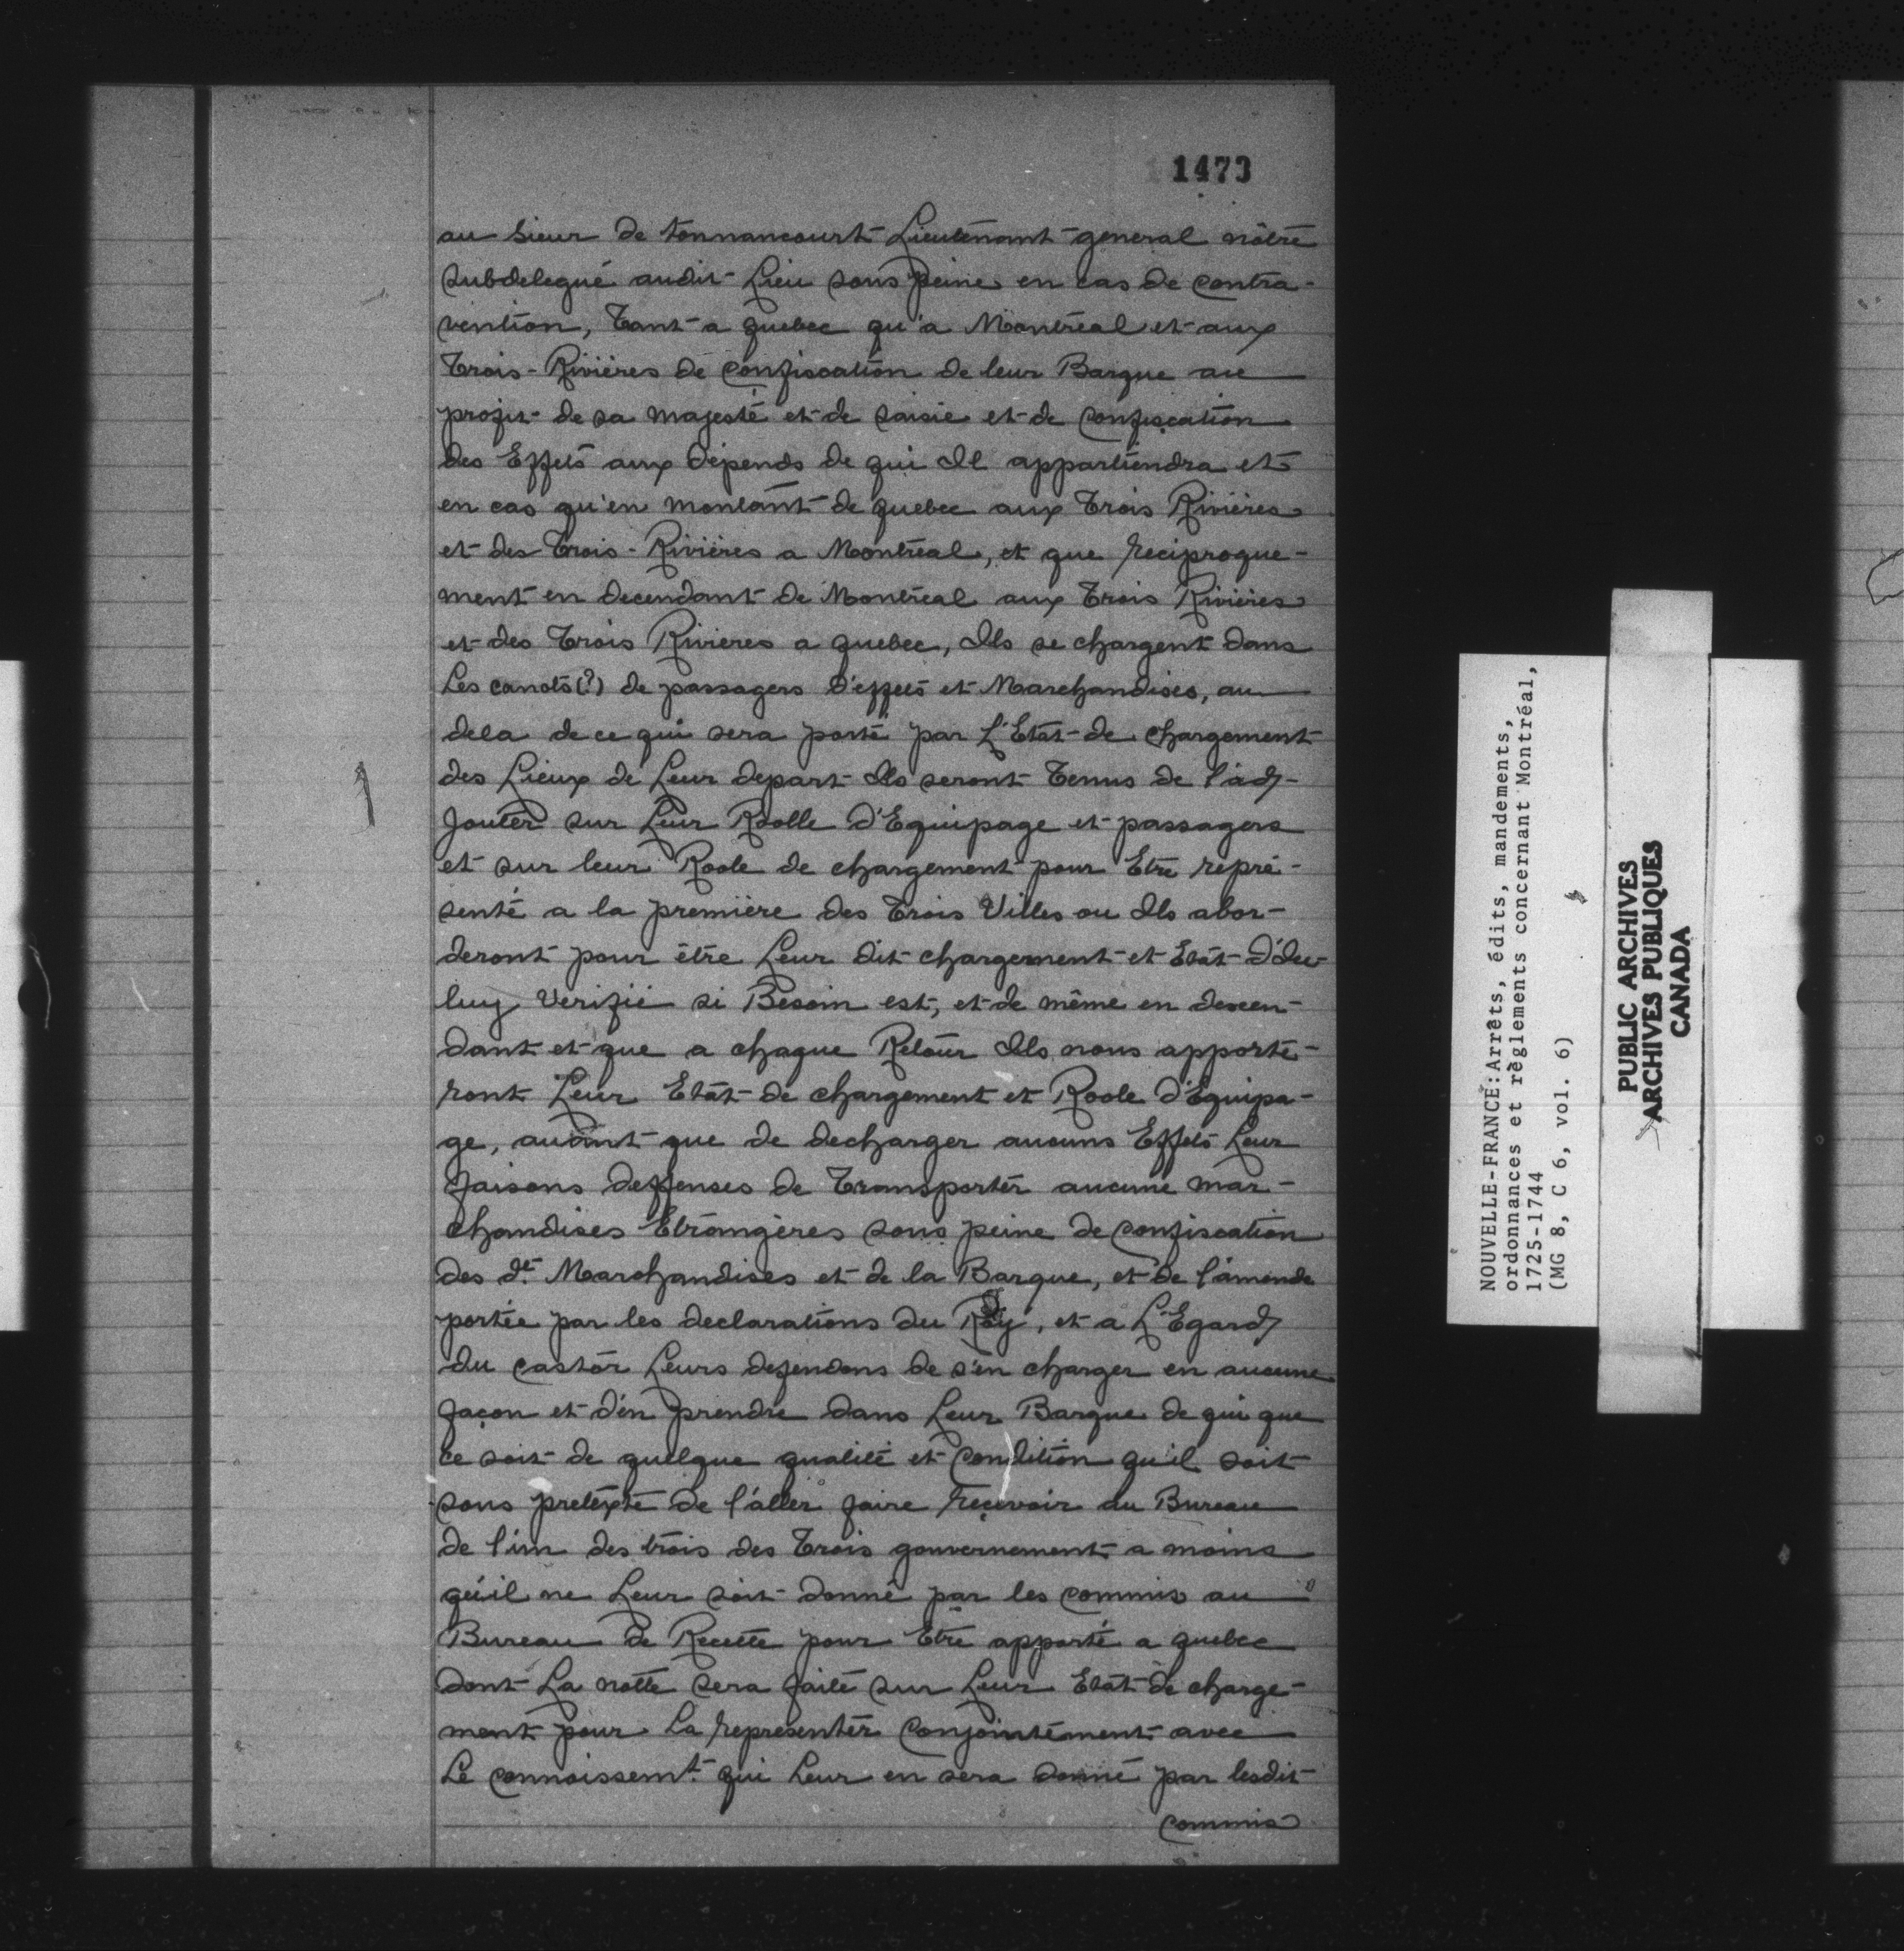 1473
au Sieur de tonnancourt Lieutenant general nôtre
subdelegué audit Lieu sous peine en cas de contra-
vention, Tant a quebec qu'a Montréal et aux
Trois-Rivières de confiscation de leur Barque au
profit de sa majesté et de saisie et de confiscation
des Effets aux dépends de qui Il appartiendra et
en cas qu'en montant de quebec aux Trois Rivières
et des Trois-Rivières a Montréal, et que reciproque-
ment en decendant de Montréal aux Trois Rivières
et des Trois Rivieres a quebec, Ils se chargent dans
Les canots(?) de passagers d'effets et Marchandises, au
dela de ce qui sera porté par L'Etat de chargement
des Lieux de Leur depart Ils seront Tenus de l'ad-
jouter sur Leur Rolle d'Equipage et passagers
et sur leur Roole de chargement pour Etre repré-
senté a la première des Trois Villes ou Ils abor-
deront pour être Leur dit chargement et Etat d'du-
luy Verifié si Besoin est, et de même en descen-
dant et que a chaque Retour Ils nous apporte-
ront Leur Etat de chargement et Roole d'Equipa-
ge, avant que de decharger aucuns Effets Leur
faisons deffenses de Transporter aucune mar-
chandises Etrangères sous peine de confiscation
des dt. Marchandises et de la Barque, et de l'amende
portée par les declarations du Roy, et a L'Egard
du castor Leurs defendons de s'en charger en aucune
façon et d'en prendre dans Leur Barque de qui que
ce soit de quelque qualité et condition qu'il soit
sous pretexte de l'aller faire reçevoir au Bureau
de l'un des trois des Trois gouvernement a moins
qu'il ne Leur soit donné par les commis au
Bureau de Recette pour Etre apporté a quebec
dont La notte sera faite sur Leur Etat de charge-
ment pour La representer conjointement avec
Le connoissemt. qui Leur en sera donné par lesdit
commis
NOUVELLE-FRANCE: Arrêts, édits, mandements,
ordonnances et règlements concernant Montréal,
1725-1744
(MG 8, C 6, vol. 6)
PUBLIC ARCHIVES
ARCHIVES PUBLIQUES
CANADA